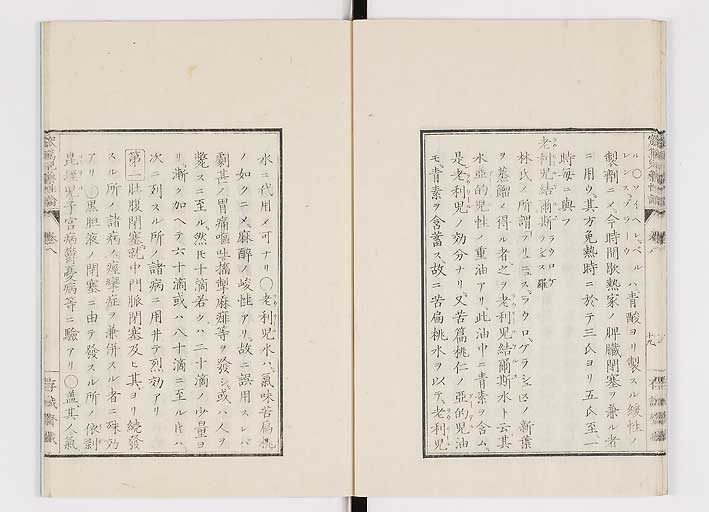 ル○ソイヘレベルハ青酸ヨリ製スル緩性ノ
レンスブラーウ
製劑ニメ今時間歇熱家ノ脾臓閉塞ヲ兼ル者
ニ用ウ其方免熱時ニ於テ三氏ヨリ五氏至一
時毎ニ與フ
老利兒結爾斯
林氏ノ所謂プリュニュスラウロゲラシュスノ新葉
ヲ蒸餾メ得ル者之ヲ老利兒結爾斯水ト云其
水亜的兒性ノ重油アリ此油中ニ青素ヲ含ム
是老利兒ノ効分ナリ又苦扁桃仁ノ亜的兒油
モ青素ヲ含蓄ス故ニ苦扁桃水ヲ以テ老利兒
水ニ代用メ可ナリ○老利兒水ハ氣味苦扁桃
ノ如クニメ麻醉ノ峻性アリ故ニ誤用スレバ
劇甚ノ胃痛嘔吐搐掣麻痺等ヲ發シ或ハ人ヲ
斃スニ至ル然氏十滴若クハ二十滴ノ少量ヨ
リ漸ク加ヘテ六十滴或ハ八十滴ニ至ル氏ハ
次ニ列スル所ノ諸病ニ用井テ烈効アリ
第一肚腹閉塞就中門脈閉塞及ヒ其ヨリ續發
スル所ノ諸病ノ痙攣症ヲ兼併スル者ニ殊効
アリ○黒胆液ノ閉塞ニ由テ發スル所ノ依剥
昆垤兒子宮病鬱憂病等ニ驗アリ○盖其人氣